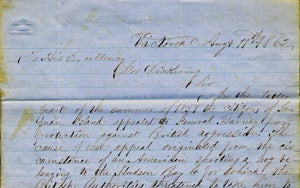 Victoria Augt 17th 1862
To His Excellency
Gov Pickering
Sir
In the latter
part of the summer of 1859 the Citizens of San
Juan Island appealed to General Harney for
protection against British aggression. The
cause of that appeal originated from the cir
cumstance of an American shooting a hog be
longing to the Hudson Bay Co for which the
British Authorities threatened to take him to